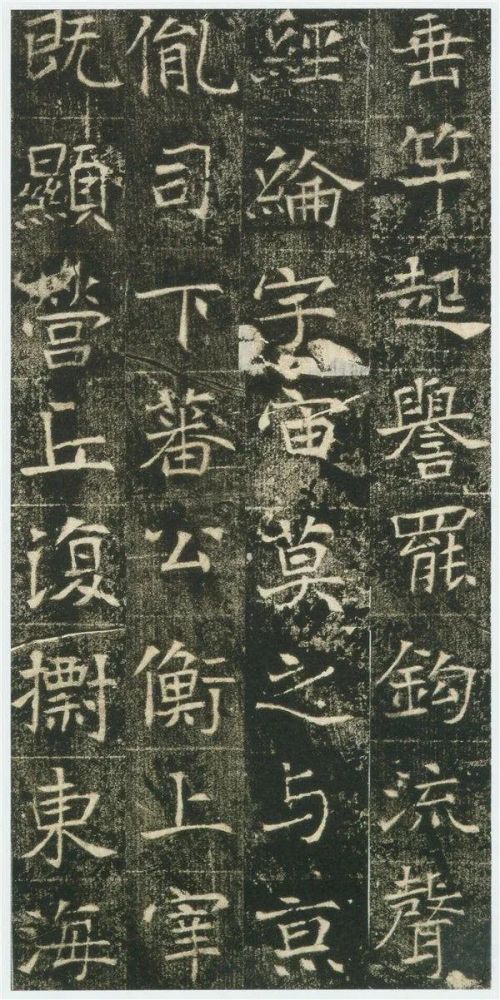 垂竿起譽罷鈎流聲
經綸宇宙莫之与亰
胤司下蕃公衡上宰
既顯營丘復東海